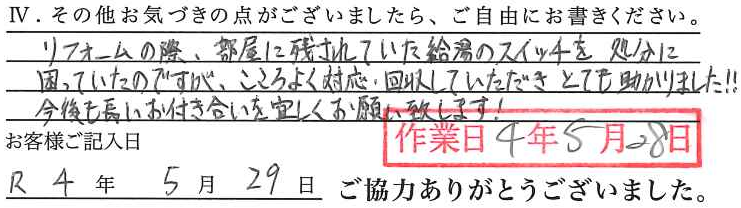 Ⅳ．その他お気づきの点がございましたら、ご自由にお書きください。
リフォームの際、部屋に残されていた給湯のスイッチを 処分に
困っていたのですが、こころよく対応・回収していただき とても助かりました!!
今後も長いお付き合いを宜しくお願い致します！
お客様ご記入日
作業日 4年 5月28日
R 4 年 5 月 29 日 ご協力ありがとうございました。